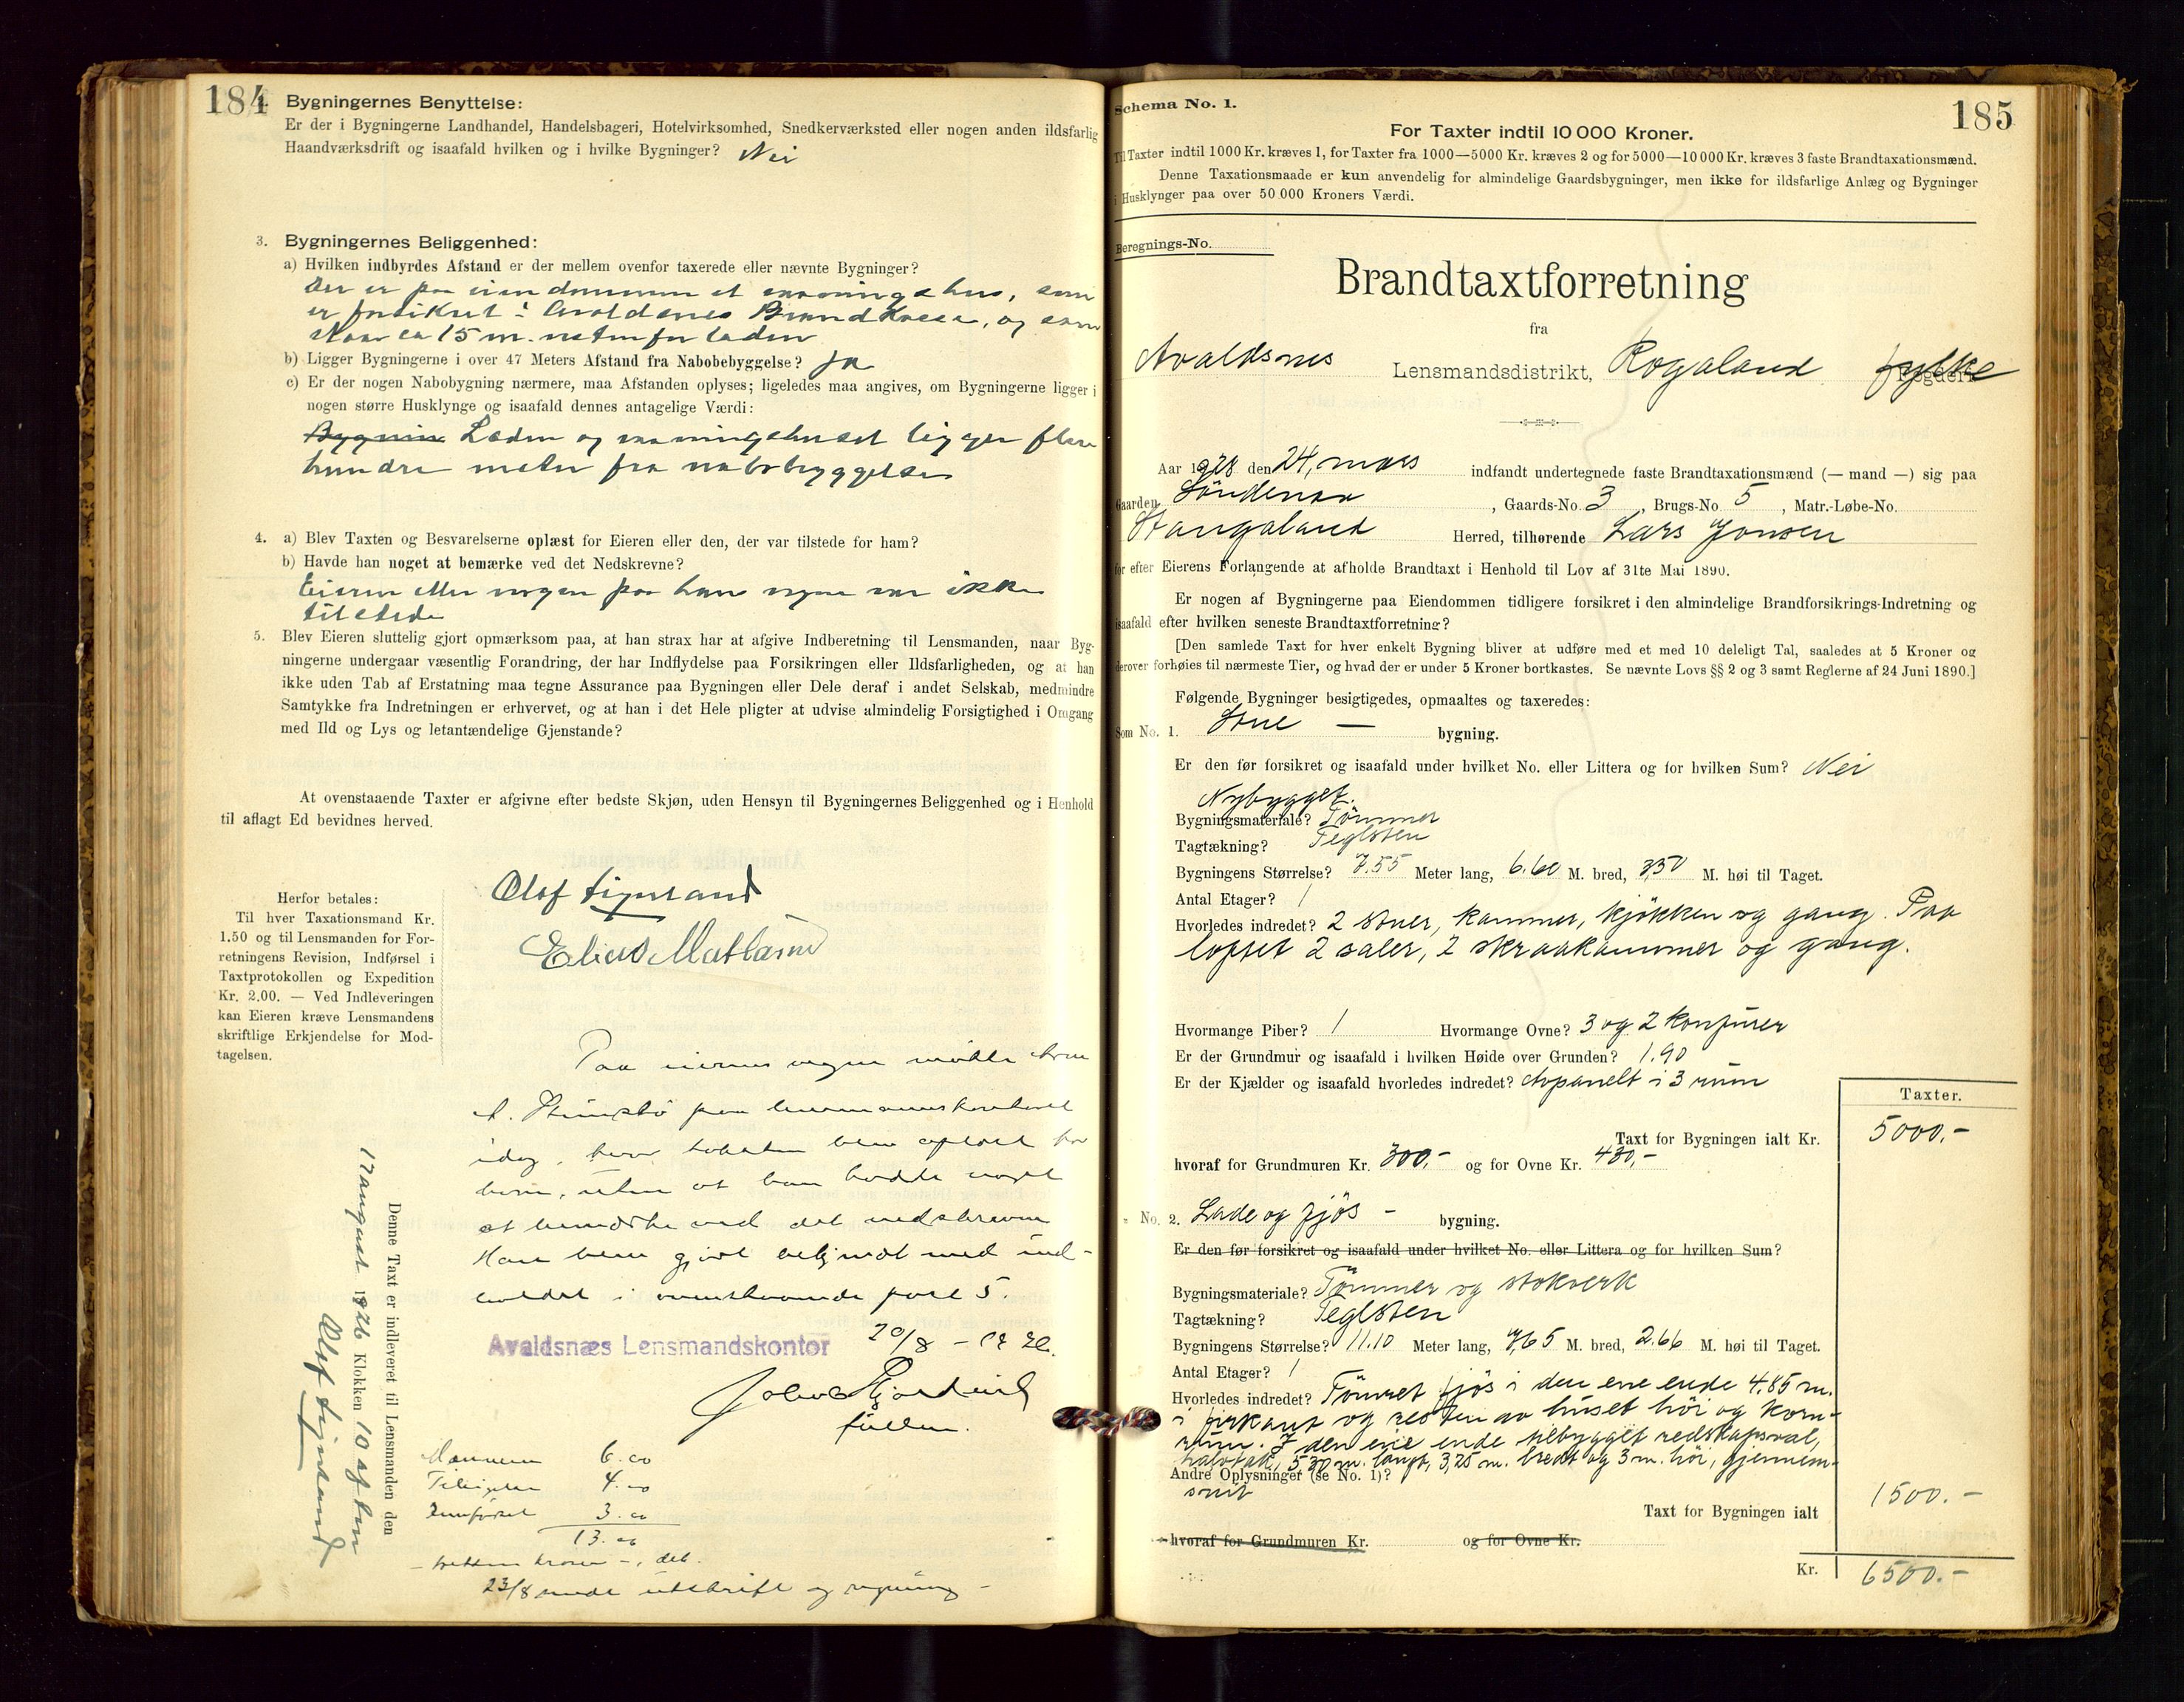 184
Bygningernes Benyttelse:
Er der i Bygningerne Landhandel, Handelsbageri, Hotelvirksomhed, Snedkerværksted eller nogen anden ildsfarlig
Haandværksdrift og isaafald hvilken og i hvilke Bygninger? Nei
3. Bygningernes Beliggenhed:
a) Hvilken indbyrdes Afstand er der mellem ovenfor taxerede eller nævnte Bygninger?
Der er paa eiendommen et vaaningshus, som
er forsikret i Avaldsnes Brandkasse, og som
staar ca 15 m. nor
b) Ligger Bygningerne i over 47 Meters Afstand fra Nabobebyggelse? Ja
c) Er der nogen Nabobygning nærmere, maa Afstanden oplyses; ligeledes maa angives, om Bygningerne ligger i
nogen større Husklynge og isaafald dennes antagelige Værdi:
Bygnin Laden og vaaningshuset ligger flere
hundre meter fra nabobyggelse
4. a) Blev Taxten og Besvarelserne oplæst for Eieren eller den, der var tilstede for ham?
b) Havde han noget at bemærke ved det Nedskrevne?
Eieren eller nogen paa hans vegne var ikke
tilstede
5. Blev Eieren sluttelig gjort opmærksom paa, at han strax har at afgive Indberetning til Lensmanden, naar Byg-
ningerne undergaar væsentlig Forandring, der har Indflydelse paa Forsikringen eller Ildsfarligheden, og at han
ikke uden Tab af Erstatning maa tegne Assurance paa Bygningen eller Dele deraf i andet Selskab, medmindre
Samtykke fra Indretningen er erhvervet, og at han i det Hele pligter at udvise almindelig Forsigtighed i Omgang
med Ild og Lys og letantændelige Gjenstande?
At ovenstaaende Taxter er afgivne efter bedste Skjøn, uden Hensyn til Bygningernes Beliggenhed og i Henhold
til aflagt Ed bevidnes herved.
Olaf
Elias
Herfor betales:
Til hver Taxationsmand Kr.
1.50 og til Lensmanden for For-
retningens Revision, Indførsel i
Taxtprotokollen og Expedition
Kr. 2.00. — Ved Indleveringen
kan Eieren kræve Lensmandens
skriftlige Erkjendelse for Mod-
tagelsen.
Paa eierens vegne møtte
paa lensmannskontoret
idag, hvor taksten blev oplæst for
ham, uten at han hadde noget
at bemerke ved det nedskrevne
Han blev gjort bekjendt med ind-
holdet i ovenstaaende post 5.
Avaldsnæs Lensmandskontor 20/8 - 1926.
fullm.
Denne Taxt er indleveret til Lensmanden den
17 august 1926 Klokken 10 af
Olaf
6.00
4.00
3.00
13.00
- tretten kroner -, det.
23/8 sende utskrift og regning -
185
Schema No. 1.
For Taxter indtil 10 000 Kroner.
Til Taxter indtil 1000 Kr. kræves 1, for Taxter fra 1000—5000 Kr. kræves 2 og for 5000—10000 Kr. kræves 3 faste Brandtaxationsmænd.
Denne Taxationsmaade er kun anvendelig for almindelige Gaardsbygninger, men ikke for ildsfarlige Anlæg og Bygninger
i Husklynger paa over 50 000 Kroners Værdi.
Beregnings-No.
Brandtaxtforretning
fra
Avaldsnes Lensmandsdistrikt, Rogaland fylke Fogderi
Aar 1928 den 24, mars indfandt undertegnede faste Brandtaxationsmænd (— mand —) sig paa
Gaarden Söndenaa, Gaards-No. 3, Brugs-No. 5, Matr.-Løbe-No.
Stangaland Herred, tilhørende Lars Jonsen
for efter Eierens Forlangende at afholde Brandtaxt i Henhold til Lov af 31te Mai 1890.
Er nogen af Bygningerne paa Eiendommen tidligere forsikret i den almindelige Brandforsikrings-Indretning og
isaafald efter hvilken seneste Brandtaxtforretning?
[Den samlede Taxt for hver enkelt Bygning bliver at udføre med et med 10 deleligt Tal, saaledes at 5 Kroner og
derover forhøies til nærmeste Tier, og hvad der er under 5 Kroner bortkastes. Se nævnte Lovs §§ 2 og 3 samt Reglerne af 24 Juni 1890.]
Følgende Bygninger besigtigedes, opmaaltes og taxeredes:
Som No. 1. Stue — bygning.
Er den før forsikret og isaafald under hvilket No. eller Littera og for hvilken Sum? Nei
Nybygget.
Bygningsmateriale? Tömmer
Tagtækning? Teglsten
Bygningens Størrelse? 7.55 Meter lang, 6.60 M. bred, 3,50 M. høi til Taget.
Antal Etager? 1
Hvorledes indredet? 2 stuer, kammer, kjökken og gang. Paa
loftet 2 saler, 2 skraakammer og gang.
Hvormange Piber? 1 Hvormange Ovne? 3 og 2 komfurer
Er der Grundmur og isaafald i hvilken Høide over Grunden? 1.90
Er der Kjælder og isaafald hvorledes indredet? Avpanelt i 3 rum
Taxter.
Taxt for Bygningen ialt Kr. 5000.-
hvoraf for Grundmuren Kr. 300,- og for Ovne Kr. 430,-
" No. 2. Lade og fjös - bygning.
Er den før forsikret og isaafald under hvilket No. eller Littera og for hvilken Sum?
Bygningsmateriale? Tömmer og stokverk
Tagtækning? Teglsten
Bygningens Størrelse? 11.10 Meter lang, 7,65 M. bred, 2.66 M. høi til Taget.
Antal Etager? 1
Hvorledes indredet? Tömret fjös i den ene ende 4.85 m.
i firkant og resten av huset höi og korn-
rum. I den ene ende tilbygget redskapsval,
halvtak, 5.30 m. langt, 3,25 m. bredt og 3 m. höi, gjennem-
Andre Oplysninger (se No. 1)?
snit
Taxt for Bygningen ialt 1500.-
hvoraf for Grundmuren Kr. og for Ovne Kr.
Kr. 6500.-